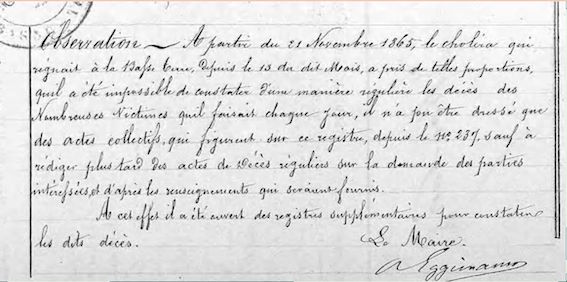 Observation — A partir du 21 Novembre 1865, le choléra qui
régnait à la Basse Terre, depuis le 13 du dit Mois, a pris de telles proportions,
qu'il a été impossible de constater d'une manière régulière les décès des
Nombreuses Victimes qu'il faisait chaque jour, il n'a pu être dressé que
des actes collectifs, qui figurent sur ce registre, depuis le No 237, sauf à
rédiger plus tard des actes de Décès réguliers sur la demande des parties
intéressées, et d'après les renseignements qui seraient fournis.
A cet effet il a été ouvert des registres supplémentaires pour constater
les dits décès. Le Maire.
A Eggimann